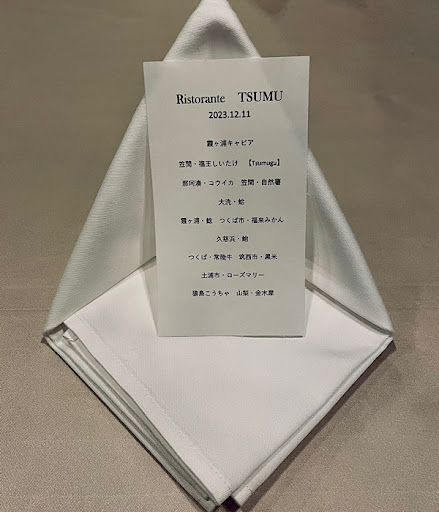 Ristorante TSUMU
2023.12.11
霞ヶ浦キャビア
笠間・福王しいたけ 【Tsumugu】
那珂湊・コウイカ 笠間・自然薯
大洗・蛤
霞ヶ浦・鯰 つくば市・福来みかん
久慈浜・鮑
つくば・常陸牛 筑西市・黒米
土浦市・ローズマリー
猿島こうちゃ 山梨・金木犀